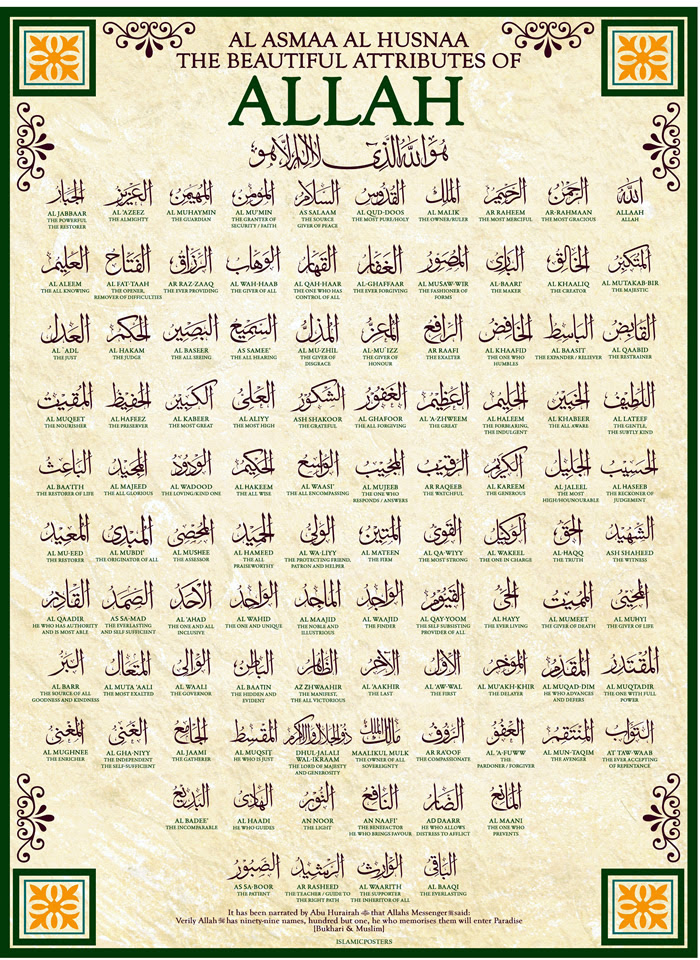 AL ASMAA AL HUSNAA
THE BEAUTIFUL ATTRIBUTES OF
ALLAH
هو الله الذي لا إله إلا هو
الله
ALLAAH
ALLAH
الرحمن
AR-RAHMAAN
THE MOST GRACIOUS
الرحيم
AR RAHEEM
THE MOST MERCIFUL
الملك
AL MALIK
THE OWNER/RULER
القدوس
AL QUD-DOOS
THE MOST PURE/HOLY
السلام
AS SALAAM
THE SOURCE
GIVER OF PEACE
المؤمن
AL MU'MIN
THE GRANTER OF
SECURITY / FAITH
المهيمن
AL MUHAYMIN
THE GUARDIAN
العزيز
AL 'AZEEZ
THE ALMIGHTY
الجبار
AL JABBAAR
THE POWERFUL
THE RESTORER
المتكبر
AL MUTAKAB-BIR
THE MAJESTIC
الخالق
AL KHAALIQ
THE CREATOR
البارئ
AL-BAARI'
THE MAKER
المصور
AL MUSAW-WIR
THE FASHIONER OF
FORMS
الغفار
AL-GHAFFAAR
THE EVER FORGIVING
القهار
AL QAH-HAAR
THE ONE WHO HAS
CONTROL OF ALL
الوهاب
AL WAH-HAAB
THE GIVER OF ALL
الرزاق
AR RAZ-ZAAQ
THE EVER PROVIDING
الفتاح
AL FAT-TAAH
THE OPENER,
REMOVER OF DIFFICULTIES
العليم
AL ALEEM
THE ALL KNOWING
القابض
AL QAABID
THE RESTRAINER
الباسط
AL BAASIT
THE EXPANDER / RELIEVER
الخافض
AL KHAAFID
THE ONE WHO
HUMBLES
الرافع
AR RAAFI
THE EXALTER
المعز
AL-MU'IZZ
THE GIVER OF
HONOUR
المذل
AL MU-ZHIL
THE GIVER OF
DISGRACE
السميع
AS SAMEE'
THE ALL HEARING
البصير
AL BASEER
THE ALL SEEING
الحكم
AL HAKAM
THE JUDGE
العدل
AL 'ADL
THE JUST
اللطيف
AL LATEEF
THE GENTLE,
THE SUBTLY KIND
الخبير
AL KHABEER
THE ALL AWARE
الحليم
AL HALEEM
THE FORBEARING,
THE INDULGENT
العظيم
AL 'A-ZHWEEM
THE GREAT
الغفور
AL GHAFOOR
THE ALL FORGIVING
الشكور
ASH SHAKOOR
THE GRATEFUL
العلي
AL ALIYY
THE MOST HIGH
الكبير
AL KABEER
THE MOST GREAT
الحفيظ
AL HAFEEZ
THE PRESERVER
المقيت
AL MUQEET
THE NOURISHER
الحسيب
AL HASEEB
THE RECKONER OF
JUDGEMENT
الجليل
AL JALEEL
THE MOST
HIGH/HOUNOURABLE
الكريم
AL KAREEM
THE GENEROUS
الرقيب
AR RAQEEB
THE WATCHFUL
المجيب
AL MUJEEB
THE ONE WHO
RESPONDS / ANSWERS
الواسع
AL WAASI'
THE ALL ENCOMPASSING
الحكيم
AL HAKEEM
THE ALL WISE
الودود
AL WADOOD
THE LOVING/KIND ONE
المجيد
AL MAJEED
THE ALL GLORIOUS
الباعث
AL BAA'ITH
THE RESTORER OF LIFE
الشهيد
ASH SHAHEED
THE WITNESS
الحق
AL-HAQQ
THE TRUTH
الوكيل
AL WAKEEL
THE ONE IN CHARGE
القوي
AL QA-WIYY
THE MOST STRONG
المتين
AL MATEEN
THE FIRM
الولي
AL WA-LIYY
THE PROTECTING FRIEND,
PATRON AND HELPER
الحميد
AL HAMEED
THE ALL
PRAISEWORTHY
المحصي
AL MUSHEE
THE ASSESSOR
المبدئ
AL MUBDI'
THE ORIGINATOR OF ALL
المعيد
AL MU-EED
THE RESTORER
المحيي
AL MUHYI
THE GIVER OF LIFE
المميت
AL MUMEET
THE GIVER OF DEATH
الحي
AL HAYY
THE EVER LIVING
القيوم
AL QAY-YOOM
THE SELF SUBSISTING
PROVIDER OF ALL
الواجد
AL WAAJID
THE FINDER
الماجد
AL MAAJID
THE NOBLE AND
ILLUSTRIOUS
الواحد
AL WAHID
THE ONE AND UNIQUE
الأحد
AL 'AHAD
THE ONE AND ALL
INCLUSIVE
الصمد
AS SA-MAD
THE EVERLASTING
AND SELF SUFFICIENT
القادر
AL QAADIR
HE WHO HAS AUTHORITY
AND IS MOST ABLE
المقتدر
AL MUQTADIR
THE ONE WITH FULL
POWER
المقدم
AL MUQAD-DIM
HE WHO ADVANCES
AND DEFERS
المؤخر
AL MU'AKH-KHIR
THE DELAYER
الأول
AL 'AW-WAL
THE FIRST
الآخر
AL 'AAKHIR
THE LAST
الظاهر
AZ ZHWAAHIR
THE MANIFEST,
THE ALL VICTORIOUS
الباطن
AL BAATIN
THE HIDDEN AND
EVIDENT
الوالي
AL WAALI
THE GOVERNOR
المتعال
AL MUTA 'AALI
THE MOST EXALTED
البر
AL BARR
THE SOURCE OF ALL
GOODNESS AND KINDNESS
التواب
AT TAW-WAAB
THE EVER ACCEPTING
OF REPENTANCE
المنتقم
AL MUN-TAQIM
THE AVENGER
العفو
AL 'A-FUWW
THE
PARDONER / FORGIVER
الرؤوف
AR RA'OOF
THE COMPASSIONATE
مالك الملك
MAALIKUL MULK
THE OWNER OF ALL
SOVEREIGNTY
ذو الجلال والإكرام
DHUL-JALALI
WAL-IKRAAM
THE LORD OF MAJESTY
AND GENEROSITY
المقسط
AL MUQSIT
HE WHO IS JUST
الجامع
AL JAAMI
THE GATHERER
الغني
AL GHA-NIYY
THE INDEPENDENT
THE SELF-SUFFICIENT
المغني
AL MUGHNEE
THE ENRICHER
المانع
AL MAANI
THE ONE WHO
PREVENTS
الضار
AD DAARR
HE WHO ALLOWS
DISTRESS TO AFFLICT
النافع
AN NAAFI'
THE BENEFACTOR
HE WHO BRINGS FAVOUR
النور
AN NOOR
THE LIGHT
الهادي
AL HAADI
HE WHO GUIDES
البديع
AL BADEE'
THE INCOMPARABLE
الباقي
AL BAAQI
THE EVERLASTING
الوارث
AL WAARITH
THE SUPPORTER
THE INHERITOR OF ALL
الرشيد
AR RASHEED
THE TEACHER / GUIDE TO
THE RIGHT PATH
الصبور
AS SA'BOOR
THE PATIENT
It has been narrated by Abu Hurairah that Allahs Messenger ﷺ said:
Verily Allah has ninety-nine names, hundred but one, he who memorises them will enter Paradise
[Bukhari & Muslim]
ISLAMICPOSTERS